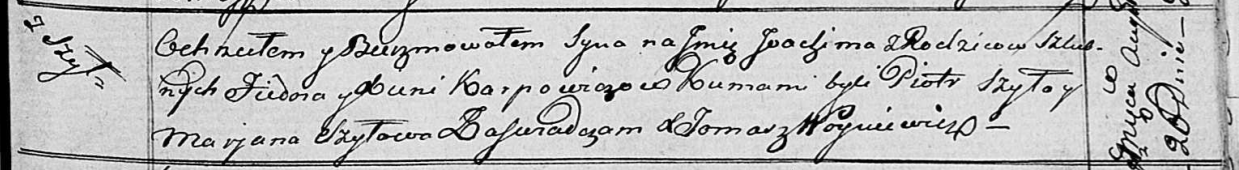 z Szył=
Ochrzciłem y Bierzmowałem Syna na Jmię Joachima z Rodzicow Szlub-
nych Fiedora y Xieni Karpowiczow Kumami byli Piotr Szyło y
Marjana Szyłowa Zaswiadczam X Tomasz Woyniewicz —
w
26 Dnia —